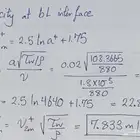 city at bL interface
= 2.5 ln a⁺ + 1.75
a√τw/ρ / ν = 0.02 √(108.3665/880) / (1.8×10⁻⁵/880)
= 2.5 ln 4640 + 1.75 = 22.8
= Vm⁺ √τw/ρ = 7.833 m